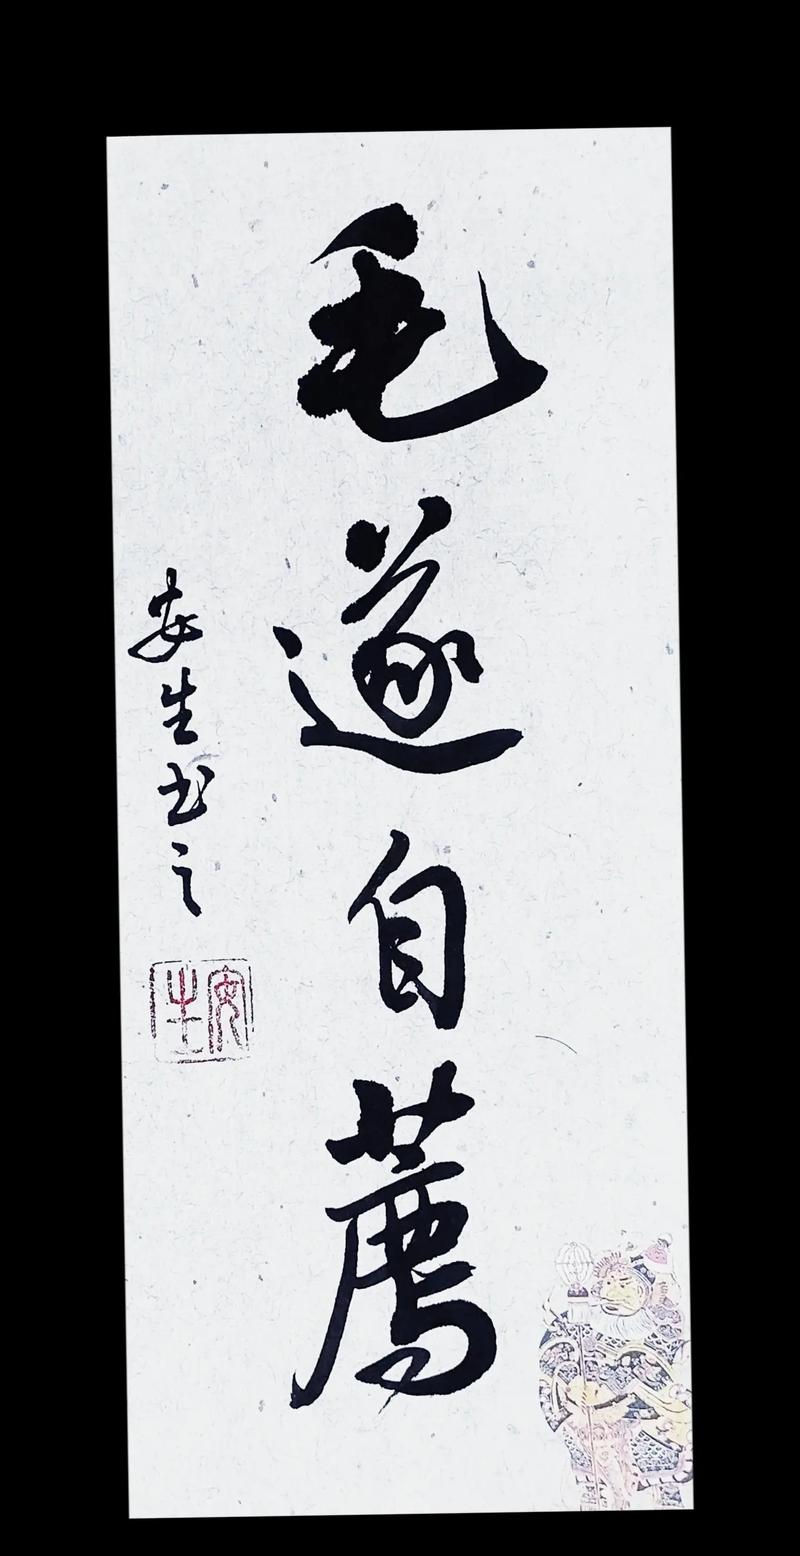 毛遂自薦
安生书之
安生